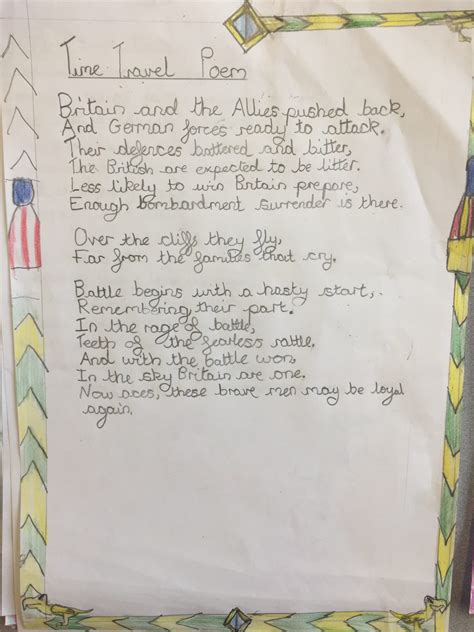 Time Travel Poem
Britain and the Allies pushed back,
And German forces ready to attack.
Their defences battered and bitter,
The British are expected to be litter.
Less likely to win Britain prepare,
Enough bombardment surrender is there.
Over the cliffs they fly,
Far from the families that cry.
Battle begins with a hasty start,
Remembering their part.
In the rage of battle,
Teeth of the fearless rattle.
And with the battle won,
In the sky Britain are one.
Now aces, these brave men may be loyal
again.